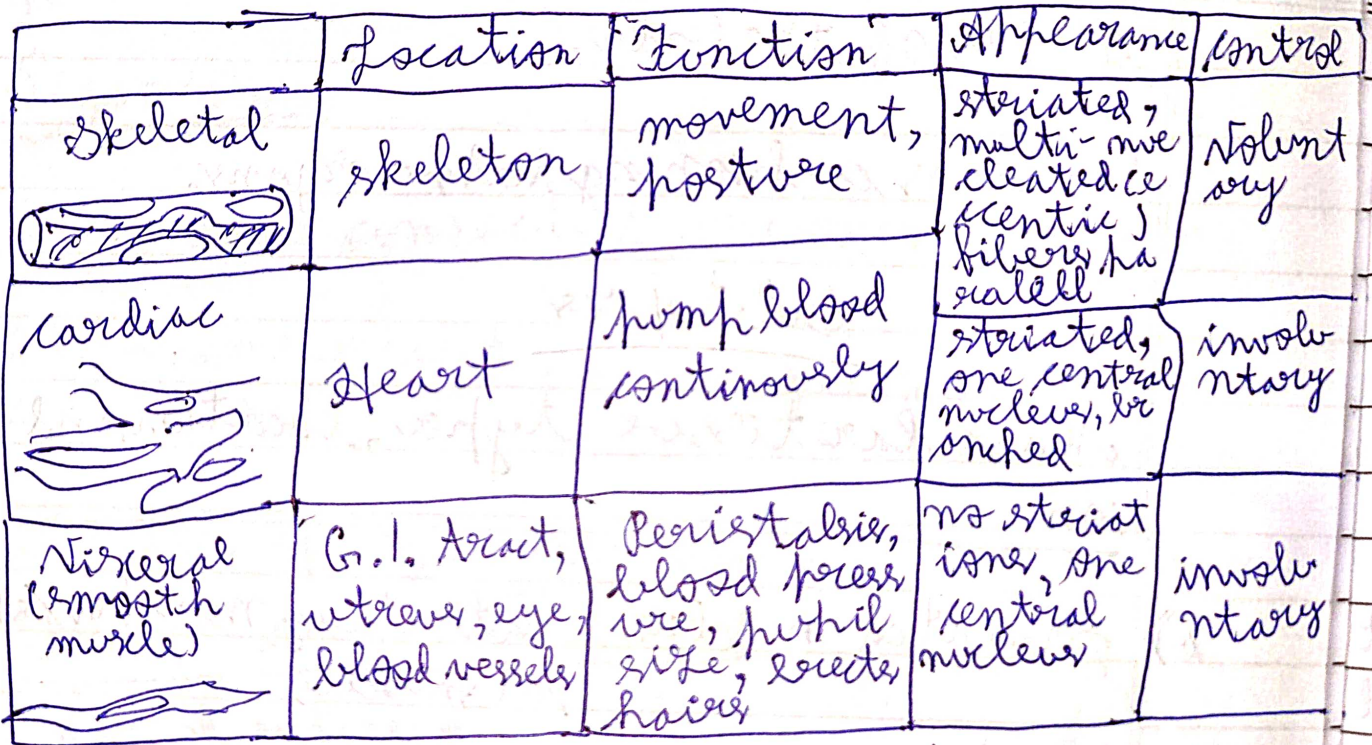 Location Function Appearance control
Skeletal
skeleton
movement,
posture
striated,
multi-nu
cleated ec
centic,
fibers pa
ralell
Volunt
ary
cardiac
Heart
pump blood
continously
striated,
one central
nucleus, br
anched
involu
ntary
Visceral
(smooth
muscle)
G.I. Tract,
utreus, eye,
blood vessels
Peristalsis,
blood press
ure, pupil
size, erects
hairs
no striat
ions, one
central
nucleus
involu
ntary